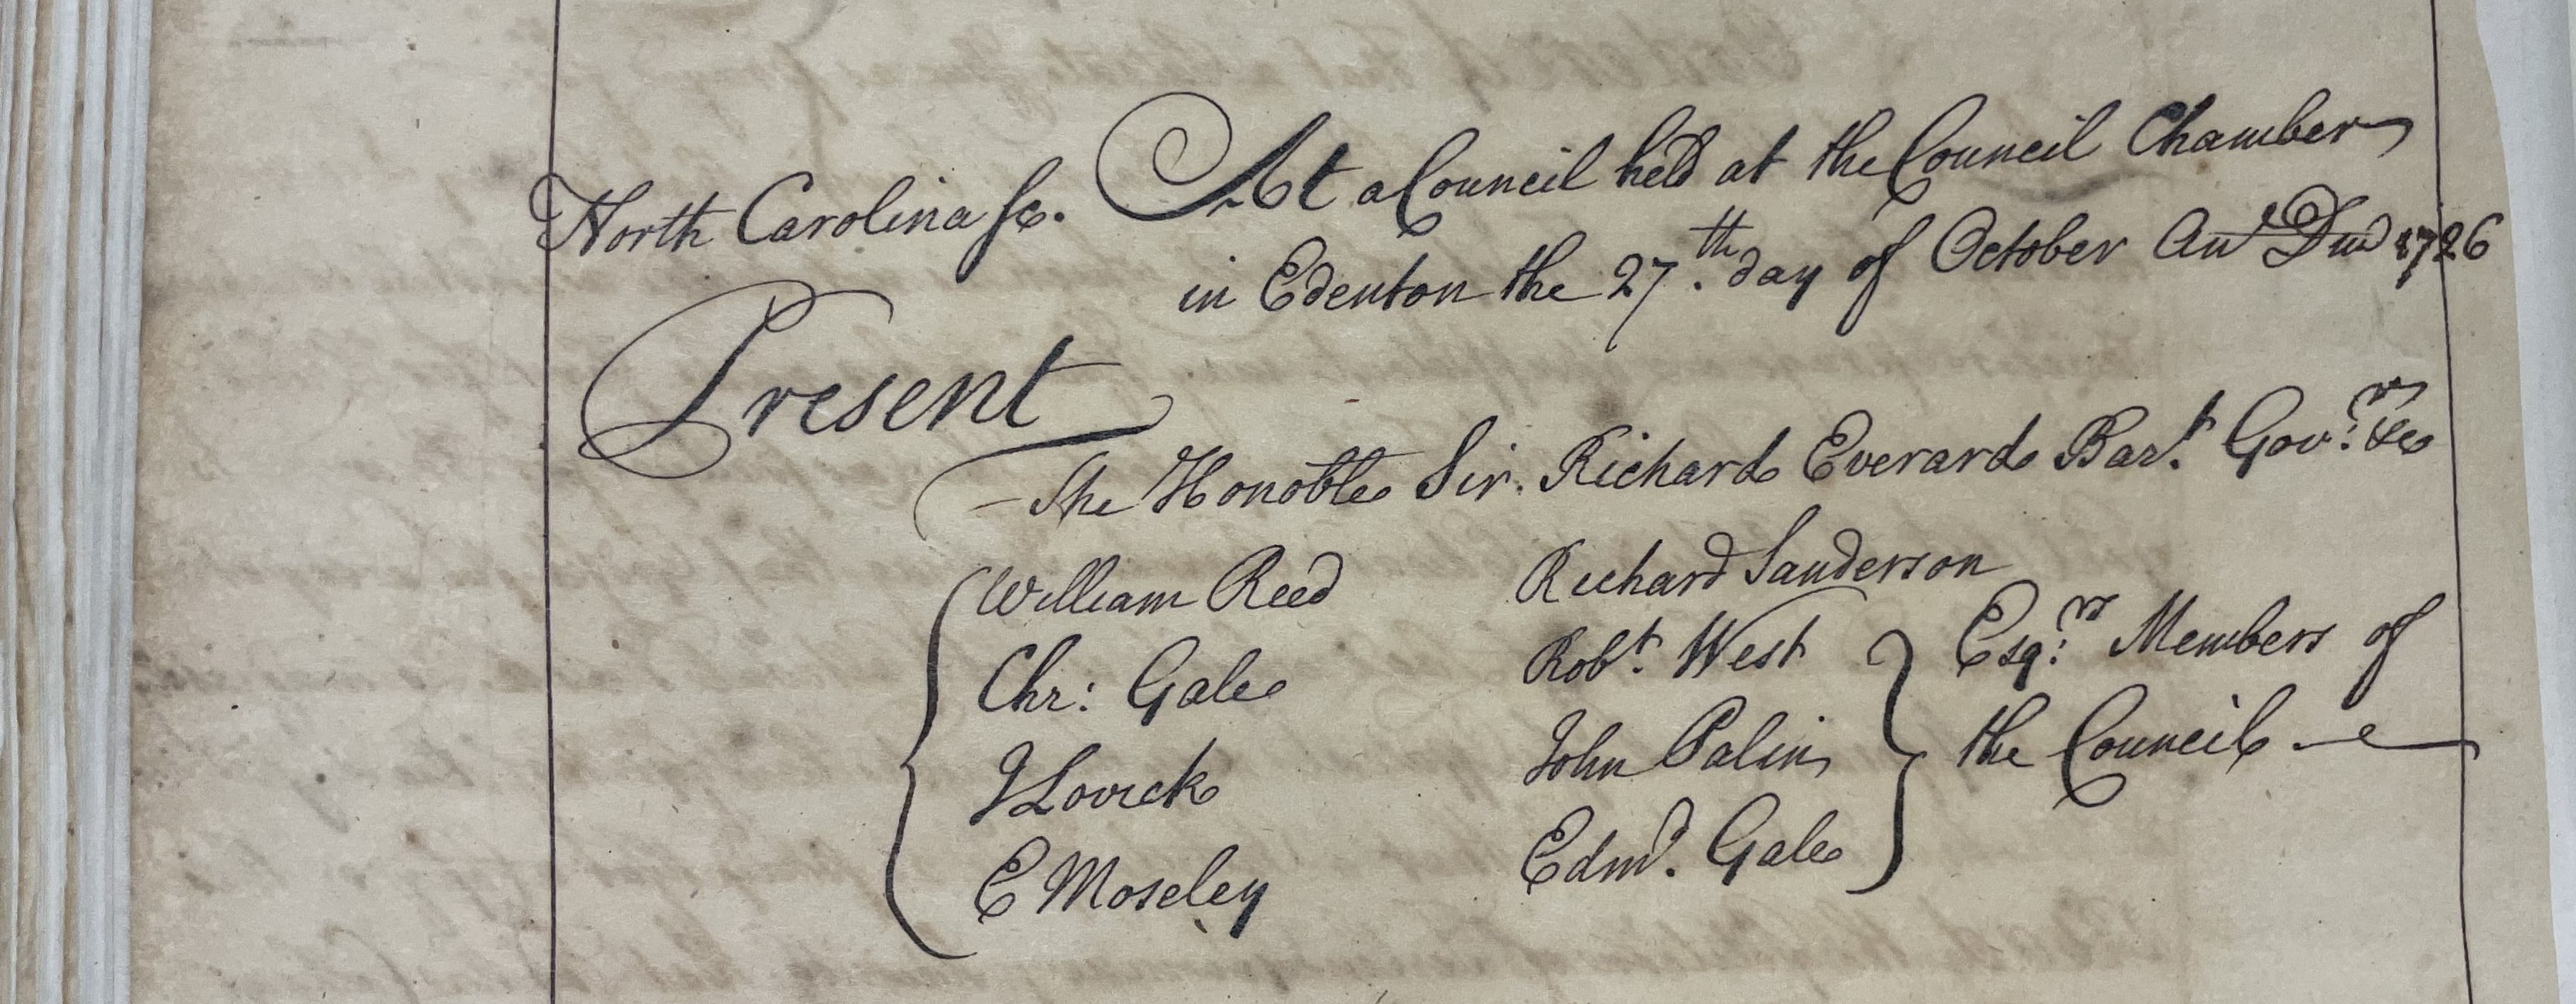 North Carolina sc. At a Council held at the Council Chamber
in Edenton the 27th. day of October Ano Dno 1726
Present
The Honoble Sir. Richard Everard Bart. Govr. &c
William Reed
Chr: Gale
J Lovick
E Moseley
Richard Sanderson
Robt. West
John Palin
Edmd. Gale
Esqrs: Members of
the Council